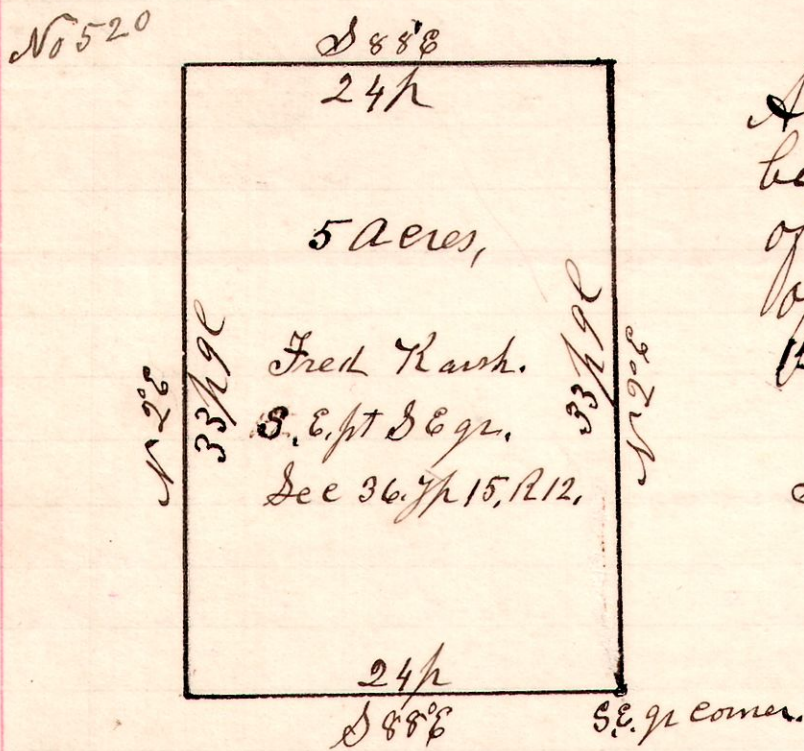 No 520
S 88°E
24p
5 Acres,
Fred Karsh.
S. E. pt S E qr.
Sec 36. Tp 15, R 12.
N 2°E
33p 9l
33p 9l
N 2°E
24p
S 88°E
S.E. qr corner.